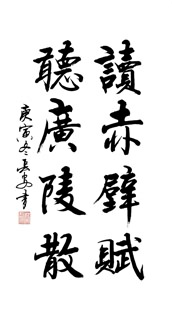 讀赤壁賦
聽廣陵散
庚寅冬
書